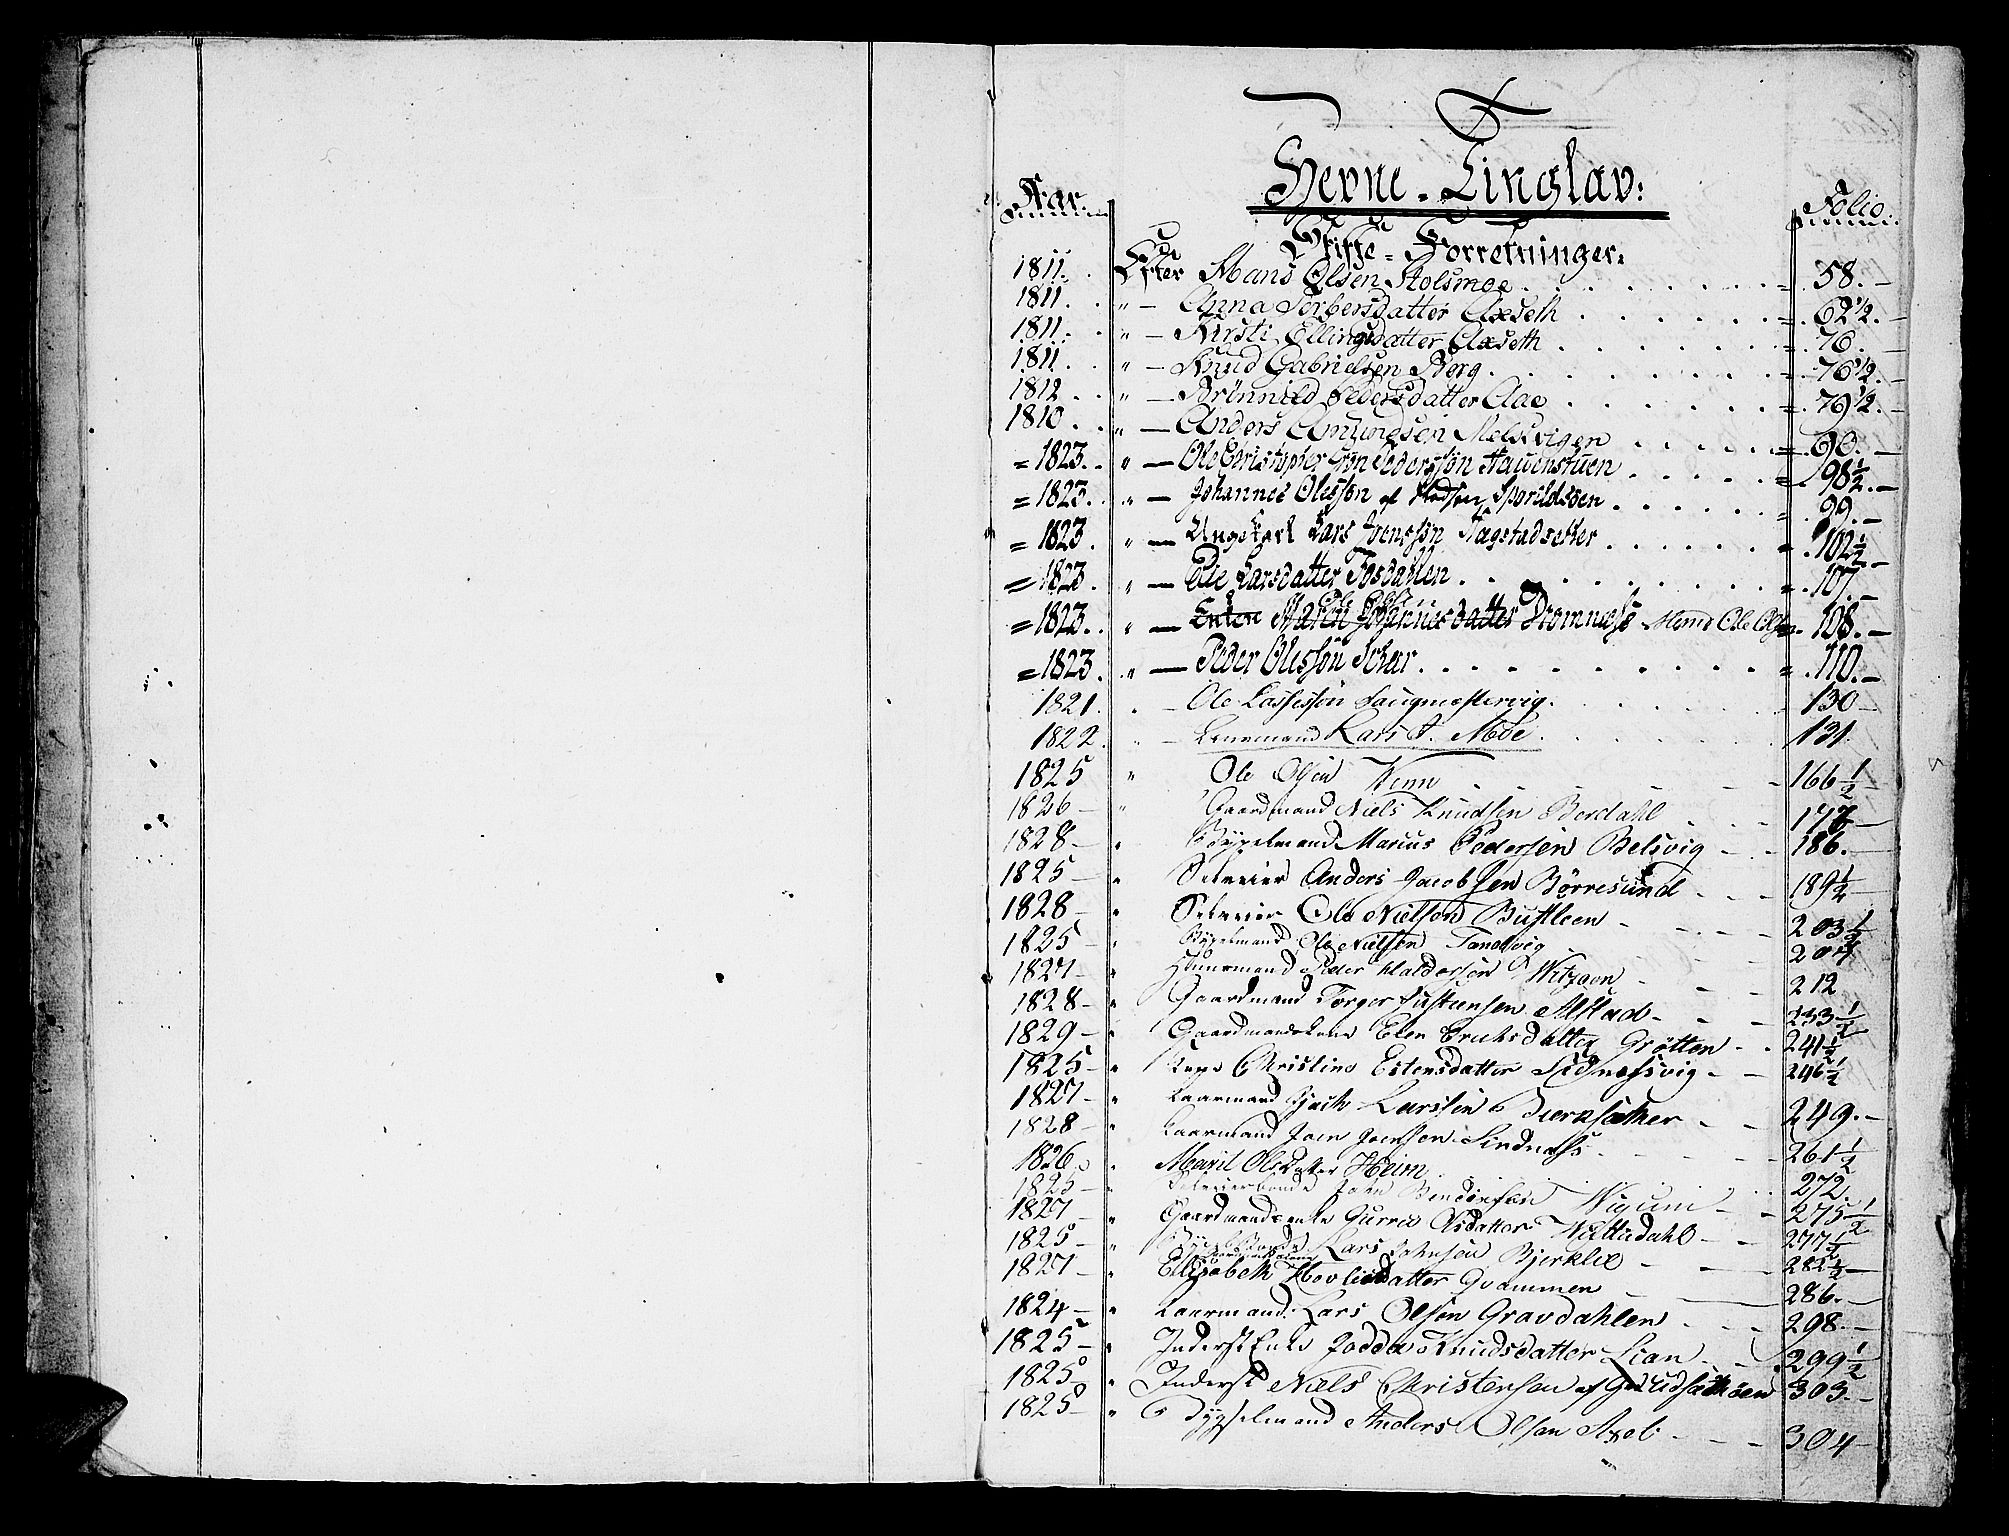 Hevne - Tinglav:
Aar Folio
Skifte - Forretninger.
1811. Efter Mans Olsen Stolsmoe 58.
1811. " - Anna Torbersdatter Axseth 62½.
1811. " - Kirsti Ellingsdatter Axseth 76.
1811. " - Knud Gabrielsen Berg 76½.
1812. " - Brönnild Pedersdatter Aae 79½.
1810. " - Anders Amundsen Melsvigen 90.
1823. " - Ole Christopher Grön Pedersön 98½.
1823. " - Johannes Olessön af Sporildsöen 99.
1823. " - Ungekarl Lars Joenssön Hagstadsetter 102½
1823. " - Elie Larsdatter Fosdahlen 107.
1823. " - Enken Maren Johannesdatter Dromnæss Mand Ole Olsen 108.
1823. " - Peder Olessön 110.
1821. " - Ole Lassessön Laugmestervig. 130
1822. " - Lensmand Lars A. Moe. 131
1825 " Ole Olsen Wenn 166½
1826 " Gaardmand Niels Knudsen Berdahl 177
1828 " Bygselmand Marius Pedersen Belsvig 186.
1825 " Selveier Anders Jacobsen Börresund 189½
1828 " Selveier Ole Nielsen Bustleen 203½
1825 " Bygselmand Ole Nielsen Tanevig 204
1827 " Huusmand Peder Haldorsen 212
1828 " Gaardmand Torger Justensen Alstad 233½
1829 " Gaardmandskone Elen Erichsdatter Grötten 241½
1825 " Christine Estensdatter 246½
1827 " Laarmand Larssen Biernsether 249.
1828 " Laarmand Joen Joenssen Sindnæss 261½
1826 " Marit Olsdatter Heim 272.
1825 " Selveierbonde John Wigum 275½
1827 " Gaardmandsenke Gurroe Olsdatter Wattudahl 277½
1825 " Lars Johnsen Bjerklie 282½
1827 " Elisabeth Hovlisdatter Qvammen 286.
1824 " Laarmand Lars Olsen Gravdahlen 298.
1825 " InderstEnke Jodda Knudsdatter Lian 299½
1825 " Inderst Niels Christensen af 303.
1825 " Bygselmand Anders Olsen Axel 304